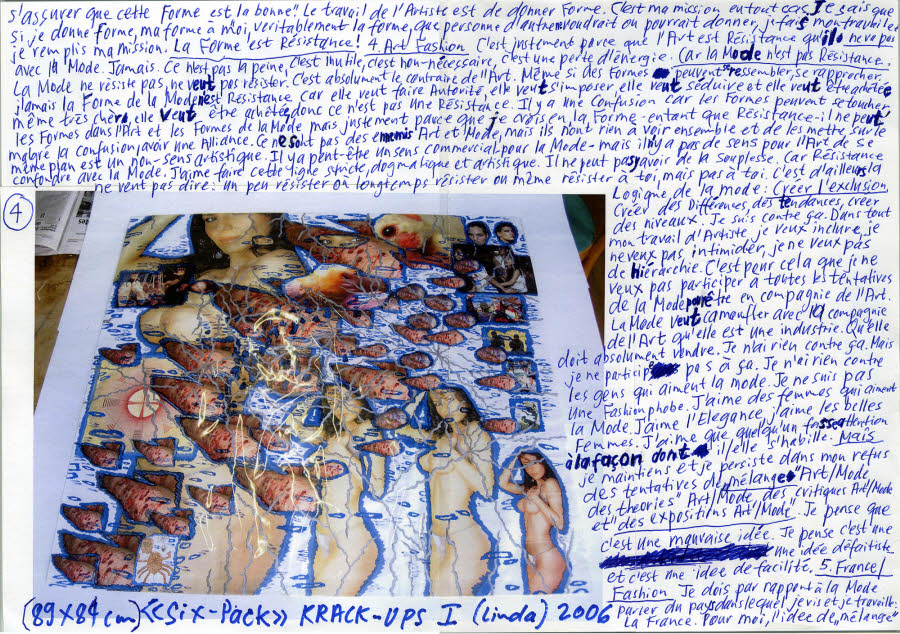 s'assurer que cette Forme est la bonne". Le travail de l'Artiste est de donner Forme. C'est ma mission en tout cas. Je sais que
si, je donne forme, ma forme à moi, véritablement la forme, que personne d'autre voudrait ou pourrait donner, je fais mon travail et
je remplis ma mission. La Forme est Résistance! 4. Art Fashion C'est justement parce que l'Art est Résistance qu'il ne va pas
avec la Mode. Jamais. Ce n'est pas la peine, c'est inutile, c'est non-nécessaire, c'est une perte d'énergie. Car la Mode n'est pas Résistance.
La Mode ne résiste pas, ne veut pas résister. C'est absolument le contraire de l'Art. Même si des Formes peuvent ressembler, se rapprocher.
jamais la Forme de la Mode n'est Résistance. Car elle veut faire Autorité, elle veut s'imposer, elle veut séduire et elle veut être achetée
même très chère, elle veut être achetée, donc ce n'est pas une Résistance. Il y a une Confusion car les Formes peuvent se toucher,
les Formes dans l'Art et les Formes de la Mode, mais justement parce que je crois en la Forme - entant que Résistance - il ne peut,
malgré la confusion, avoir une Alliance. Ce ne sont pas des ennemis Art et Mode, mais ils n'ont rien à voir ensemble et de les mettre sur le
même plan est un non-sens artistique. Il y a peut-être un sens commercial, pour la Mode - mais il n'y a pas de sens pour l'Art de se
confondre avec la Mode. J'aime faire cette ligne stricte, dogmatique et artistique. Il ne peut pas y avoir de la souplesse. Car Résistance
ne veut pas dire: un peu résister ou longtemps résister ou même résister à toi, mais pas à toi. C'est d'ailleurs la
4
Logique de la mode: Créer l'exclusion
Créer des Différences, des tendances, créer
des niveaux. Je suis contre ça. Dans tout
mon travail d'Artiste, je veux inclure, je
ne veux pas intimider, je ne veux pas
de hiérarchie. C'est pour cela que je ne
veux pas participer à toutes les tentatives
de la Mode paraître en compagnie de l'Art.
La Mode veut camoufler avec la compagnie
de l'Art qu'elle est une industrie. Qu'elle
doit absolument vendre. Je n'ai rien contre ça. Mais
je ne participe pas à ça. Je n'ai rien contre
les gens qui aiment la mode. Je ne suis pas
une Fashionphobe. J'aime des femmes qui aiment
la Mode. J'aime l'Elegance, j'aime les belles
Femmes. J'aime que quelqu'un fasse attention
à la façon dont il/elle s'habille. Mais
je maintiens et je persiste dans mon refus
des tentatives de mélange "Art/Mode
des théories" Art/Mode, des critiques Art/Mode
et "des expositions Art/Mode". Je pense que
c'est une mauvaise idée. Je pense c'est une
une idée défaitiste
et c'est une idée de facilité. 5. France/
Fashion Je dois par rapport à la Mode
parler du pays dans lequel je vis et je travaille:
La France. Pour moi, l'idée de "mélange"
(89x84 cm) <<Six-Pack>> KRACK-UPS I (Linda) 2006